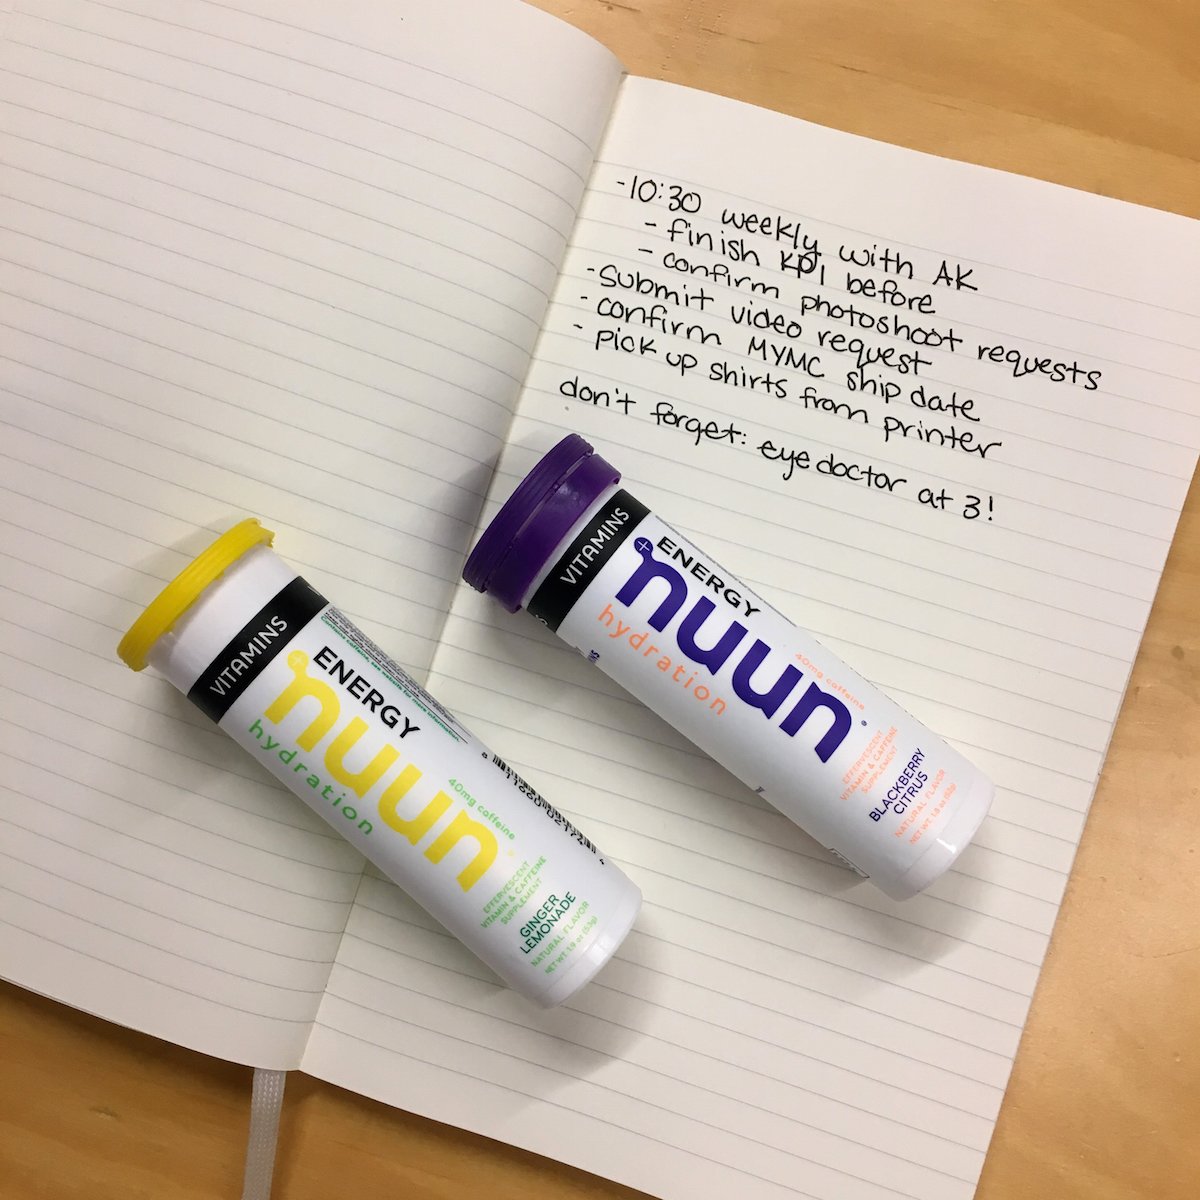 -10:30 weekly with AK
- finish KPI before
- confirm photoshoot requests
- submit video request
- confirm MYMC ship date
- pick up shirts from printer
don't forget: eye doctor at 3!
VITAMINS
+ ENERGY
nuun
hydration
40mg caffeine
EFFERVESCENT
VITAMIN & CAFFEINE
SUPPLEMENT
BLACKBERRY
CITRUS
NATURAL FLAVOR
NET WT. 1.8 oz
VITAMINS
+ ENERGY
nuun
hydration
40mg caffeine
EFFERVESCENT
VITAMIN & CAFFEINE
SUPPLEMENT
GINGER
LEMONADE
NATURAL FLAVOR
NET WT. 1.9 oz (53g)
Contains caffeine, see website for more information.